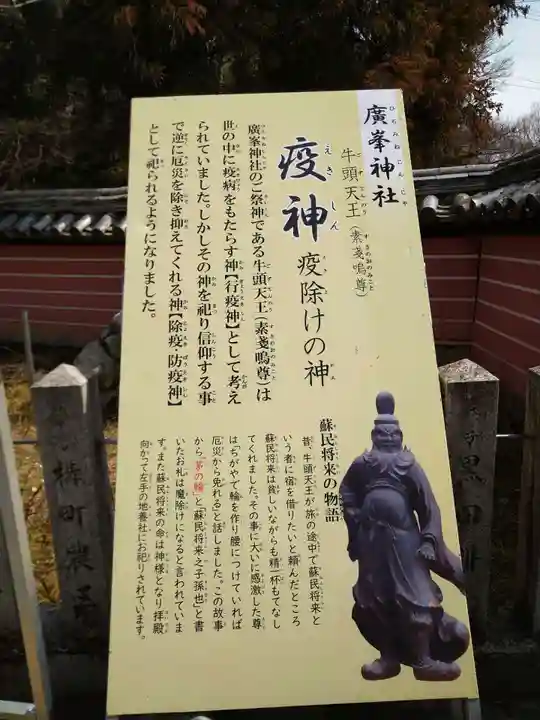 廣峯神社
ひろみねじんじゃ
牛頭天王(素戔嗚尊)
ごずてんのう
すさのおのみこと
疫神 疫除けの神
えきしん
廣峯神社のご祭神である牛頭天王(素戔嗚尊)は
世の中に疫病をもたらす神【行疫神】として考え
られていました。しかしその神を祀り信仰する事
で逆に厄災を除き抑えてくれる神【除疫・防疫神】
として祀られるようになりました。
蘇民将来の物語
昔、牛頭天王が旅の途中で蘇民将来と
いう者に宿を借りたいと頼んだところ
蘇民将来は貧しいながらも精一杯もてなし
てくれました。その事に大いに感激した尊
は「ちがやで輪を作り腰につけていれば
厄災から免れる」と話しました。この故事
から「茅の輪」と「蘇民将来之子孫也」と書
いたお札は魔除けになると言われていま
す。また蘇民将来の命は神様となり拝殿
向かって左手の地養社にお祀りされています。
町農
黒田